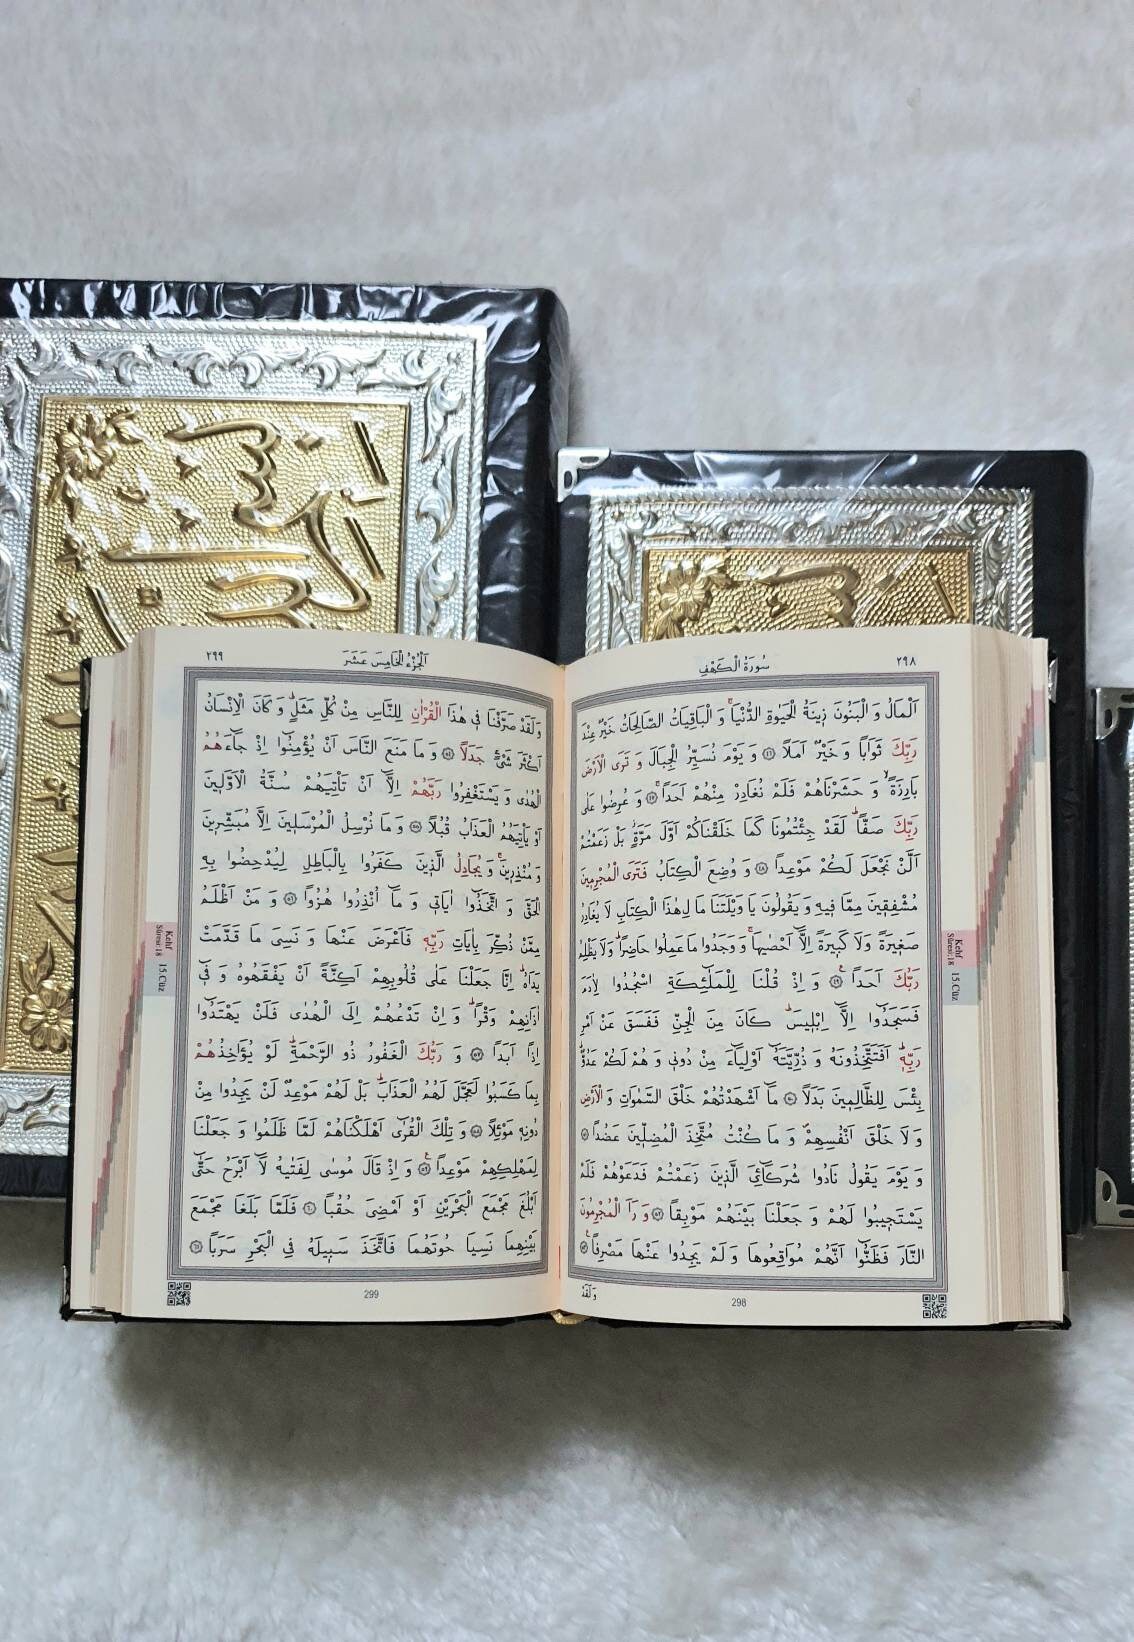 سُورَةُ الْكَهْفِ
٢٩٨
اَلْمَالُ وَ الْبَنُونَ زٖينَةُ الْحَيٰوةِ الدُّنْيَاۚ وَ الْبَاقِيَاتُ الصَّالِحَاتُ خَيْرٌ عِنْدَ
رَبِّكَ ثَوَابًا وَ خَيْرٌ اَمَلًا ﴿٤٦﴾ وَ يَوْمَ نُسَيِّرُ الْجِبَالَ وَ تَرَى الْاَرْضَ
بَارِزَةًۙ وَ حَشَرْنَاهُمْ فَلَمْ نُغَادِرْ مِنْهُمْ اَحَدًاۚ ﴿٤٧﴾ وَ عُرِضُوا عَلٰى
رَبِّكَ صَفًّاؕ لَقَدْ جِئْتُمُونَا كَمَا خَلَقْنَاكُمْ اَوَّلَ مَرَّةٍؗ بَلْ زَعَمْتُمْ
اَلَّنْ نَجْعَلَ لَكُمْ مَوْعِدًا ﴿٤٨﴾ وَ وُضِعَ الْكِتَابُ فَتَرَى الْمُجْرِمٖينَ
مُشْفِقٖينَ مِمَّا فٖيهِ وَ يَقُولُونَ يَا وَيْلَتَنَا مَا لِ‌هٰذَا الْكِتَابِ لَا يُغَادِرُ
صَغٖيرَةً وَلَا كَبٖيرَةً اِلَّٓا اَحْصٰيهَاۚ وَ وَجَدُوا مَا عَمِلُوا حَاضِرًاؕ وَلَا يَظْلِمُ
رَبُّكَ اَحَدًاࣖ ﴿٤٩﴾ وَ اِذْ قُلْنَا لِلْمَلٰٓئِكَةِ اسْجُدُوا لِاٰدَمَ
فَسَجَدُٓوا اِلَّٓا اِبْلٖيسَؕ كَانَ مِنَ الْجِنِّ فَفَسَقَ عَنْ اَمْرِ
رَبِّهٖؕ اَفَتَتَّخِذُونَهُ وَ ذُرِّيَّتَهُٓ اَوْلِيَٓاءَ مِنْ دُونٖي وَ هُمْ لَكُمْ عَدُوٌّؕ
بِئْسَ لِلظَّالِمٖينَ بَدَلًا ﴿٥٠﴾ مَٓا اَشْهَدْتُهُمْ خَلْقَ السَّمٰوَاتِ وَ الْاَرْضِ
وَ لَا خَلْقَ اَنْفُسِهِمْࣕ وَ مَا كُنْتُ مُتَّخِذَ الْمُضِلّٖينَ عَضُدًا ﴿٥١﴾
وَ يَوْمَ يَقُولُ نَادُوا شُرَكَٓائِيَ الَّذٖينَ زَعَمْتُمْ فَدَعَوْهُمْ فَلَمْ
يَسْتَجٖيبُوا لَهُمْ وَ جَعَلْنَا بَيْنَهُمْ مَوْبِقًا ﴿٥٢﴾ وَ رَاَ الْمُجْرِمُونَ
النَّارَ فَظَنُّٓوا اَنَّهُمْ مُوَاقِعُوهَا وَ لَمْ يَجِدُوا عَنْهَا مَصْرِفًاࣖ ﴿٥٣﴾
وَ لَقَدْ
298
Kehf
Sûresi:18
15.Cüz
اَلْجُزْءُ الْخَامِسَ عَشَرَ
٢٩٩
وَ لَقَدْ صَرَّفْنَا فٖي هٰذَا الْقُرْاٰنِ لِلنَّاسِ مِنْ كُلِّ مَثَلٍؕ وَ كَانَ الْاِنْسَانُ
اَكْثَرَ شَيْءٍ جَدَلًا ﴿٥٤﴾ وَ مَا مَنَعَ النَّاسَ اَنْ يُؤْمِنُٓوا اِذْ جَٓاءَهُمُ
الْهُدٰى وَ يَسْتَغْفِرُوا رَبَّهُمْ اِلَّٓا اَنْ تَأْتِيَهُمْ سُنَّةُ الْاَوَّلٖينَ
اَوْ يَأْتِيَهُمُ الْعَذَابُ قُبُلًا ﴿٥٥﴾ وَ مَا نُرْسِلُ الْمُرْسَلٖينَ اِلَّا مُبَشِّرٖينَ
وَ مُنْذِرٖينَۚ وَ يُجَادِلُ الَّذٖينَ كَفَرُوا بِالْبَاطِلِ لِيُدْحِضُوا بِهِ
الْحَقَّ وَ اتَّخَذُٓوا اٰيَاتٖي وَ مَٓا اُنْذِرُوا هُزُوًا ﴿٥٦﴾ وَ مَنْ اَظْلَمُ
مِمَّنْ ذُكِّرَ بِاٰيَاتِ رَبِّهٖ فَاَعْرَضَ عَنْهَا وَ نَسِيَ مَا قَدَّمَتْ
يَدَاهُؕ اِنَّا جَعَلْنَا عَلٰى قُلُوبِهِمْ اَكِنَّةً اَنْ يَفْقَهُوهُ وَ فٖٓي
اٰذَانِهِمْ وَقْرًاؕ وَ اِنْ تَدْعُهُمْ اِلَى الْهُدٰى فَلَنْ يَهْتَدُٓوا
اِذًا اَبَدًا ﴿٥٧﴾ وَ رَبُّكَ الْغَفُورُ ذُو الرَّحْمَةِؕ لَوْ يُؤَاخِذُهُمْ
بِمَا كَسَبُوا لَعَجَّلَ لَهُمُ الْعَذَابَؕ بَلْ لَهُمْ مَوْعِدٌ لَنْ يَجِدُوا مِنْ
دُونِهٖ مَوْئِلًا ﴿٥٨﴾ وَ تِلْكَ الْقُرٰٓى اَهْلَكْنَاهُمْ لَمَّا ظَلَمُوا وَ جَعَلْنَا
لِمَهْلِكِهِمْ مَوْعِدًاࣖ ﴿٥٩﴾ وَ اِذْ قَالَ مُوسٰى لِفَتٰيهُ لَٓا اَبْرَحُ حَتّٰٓى
اَبْلُغَ مَجْمَعَ الْبَحْرَيْنِ اَوْ اَمْضِيَ حُقُبًا ﴿٦٠﴾ فَلَمَّا بَلَغَا مَجْمَعَ
بَيْنِهِمَا نَسِيَا حُوتَهُمَا فَاتَّخَذَ سَبٖيلَهُ فِي الْبَحْرِ سَرَبًا ﴿٦١﴾
299
Kehf
Sûresi:18
15.Cüz